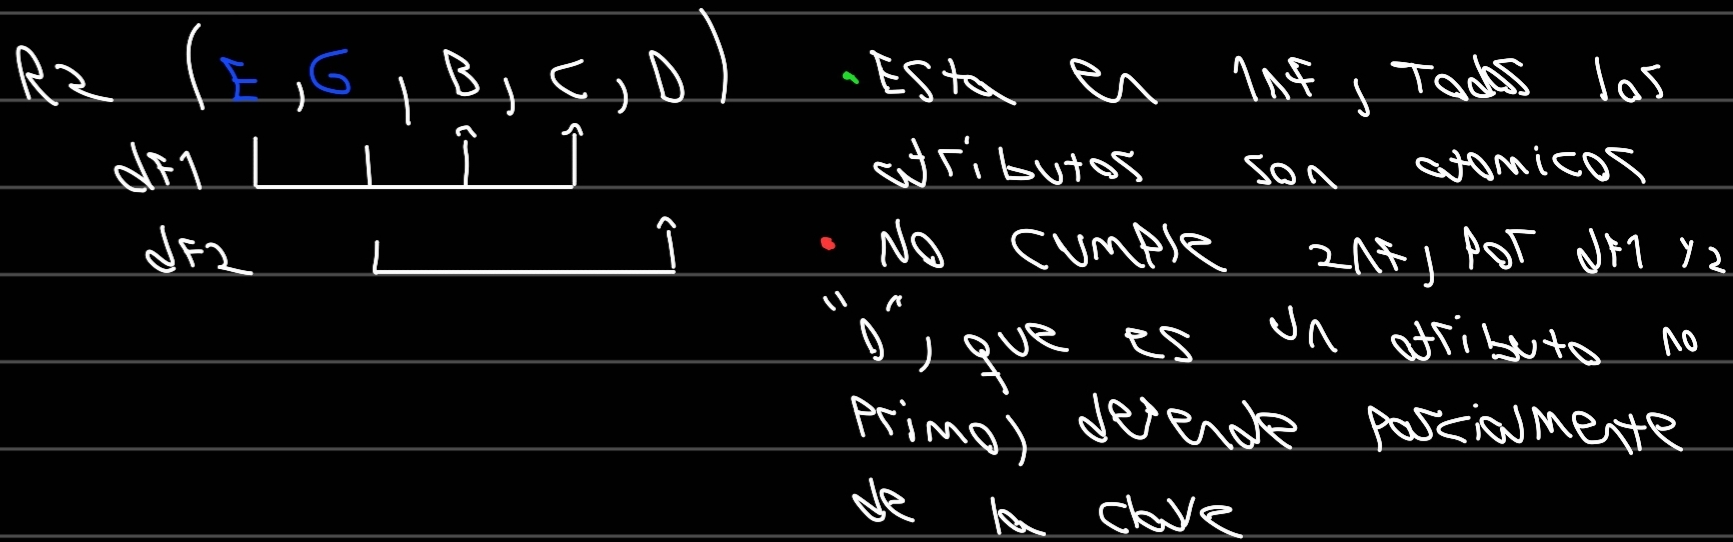 R2 (E, G, B, C, D)
df1
df2
• Esta en 1NF, Todos los
atributos son atomicos
• No cumple 2NF, por df1 y 2
"D", que es un atributo no
Primo, depende parcialmente
de la clave